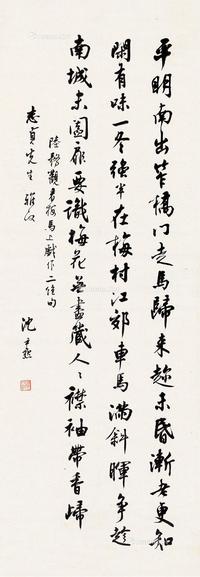 平明南出笮橋門走馬歸來趁未昏漸老更知
閑有味一冬強半在梅村江郊車馬滿斜暉爭趁
南城未闔扉要識梅花無盡藏人〻襟袖帶香歸
陸務觀看梅馬上戲作二絕句
志貞先生雅教
沈尹默